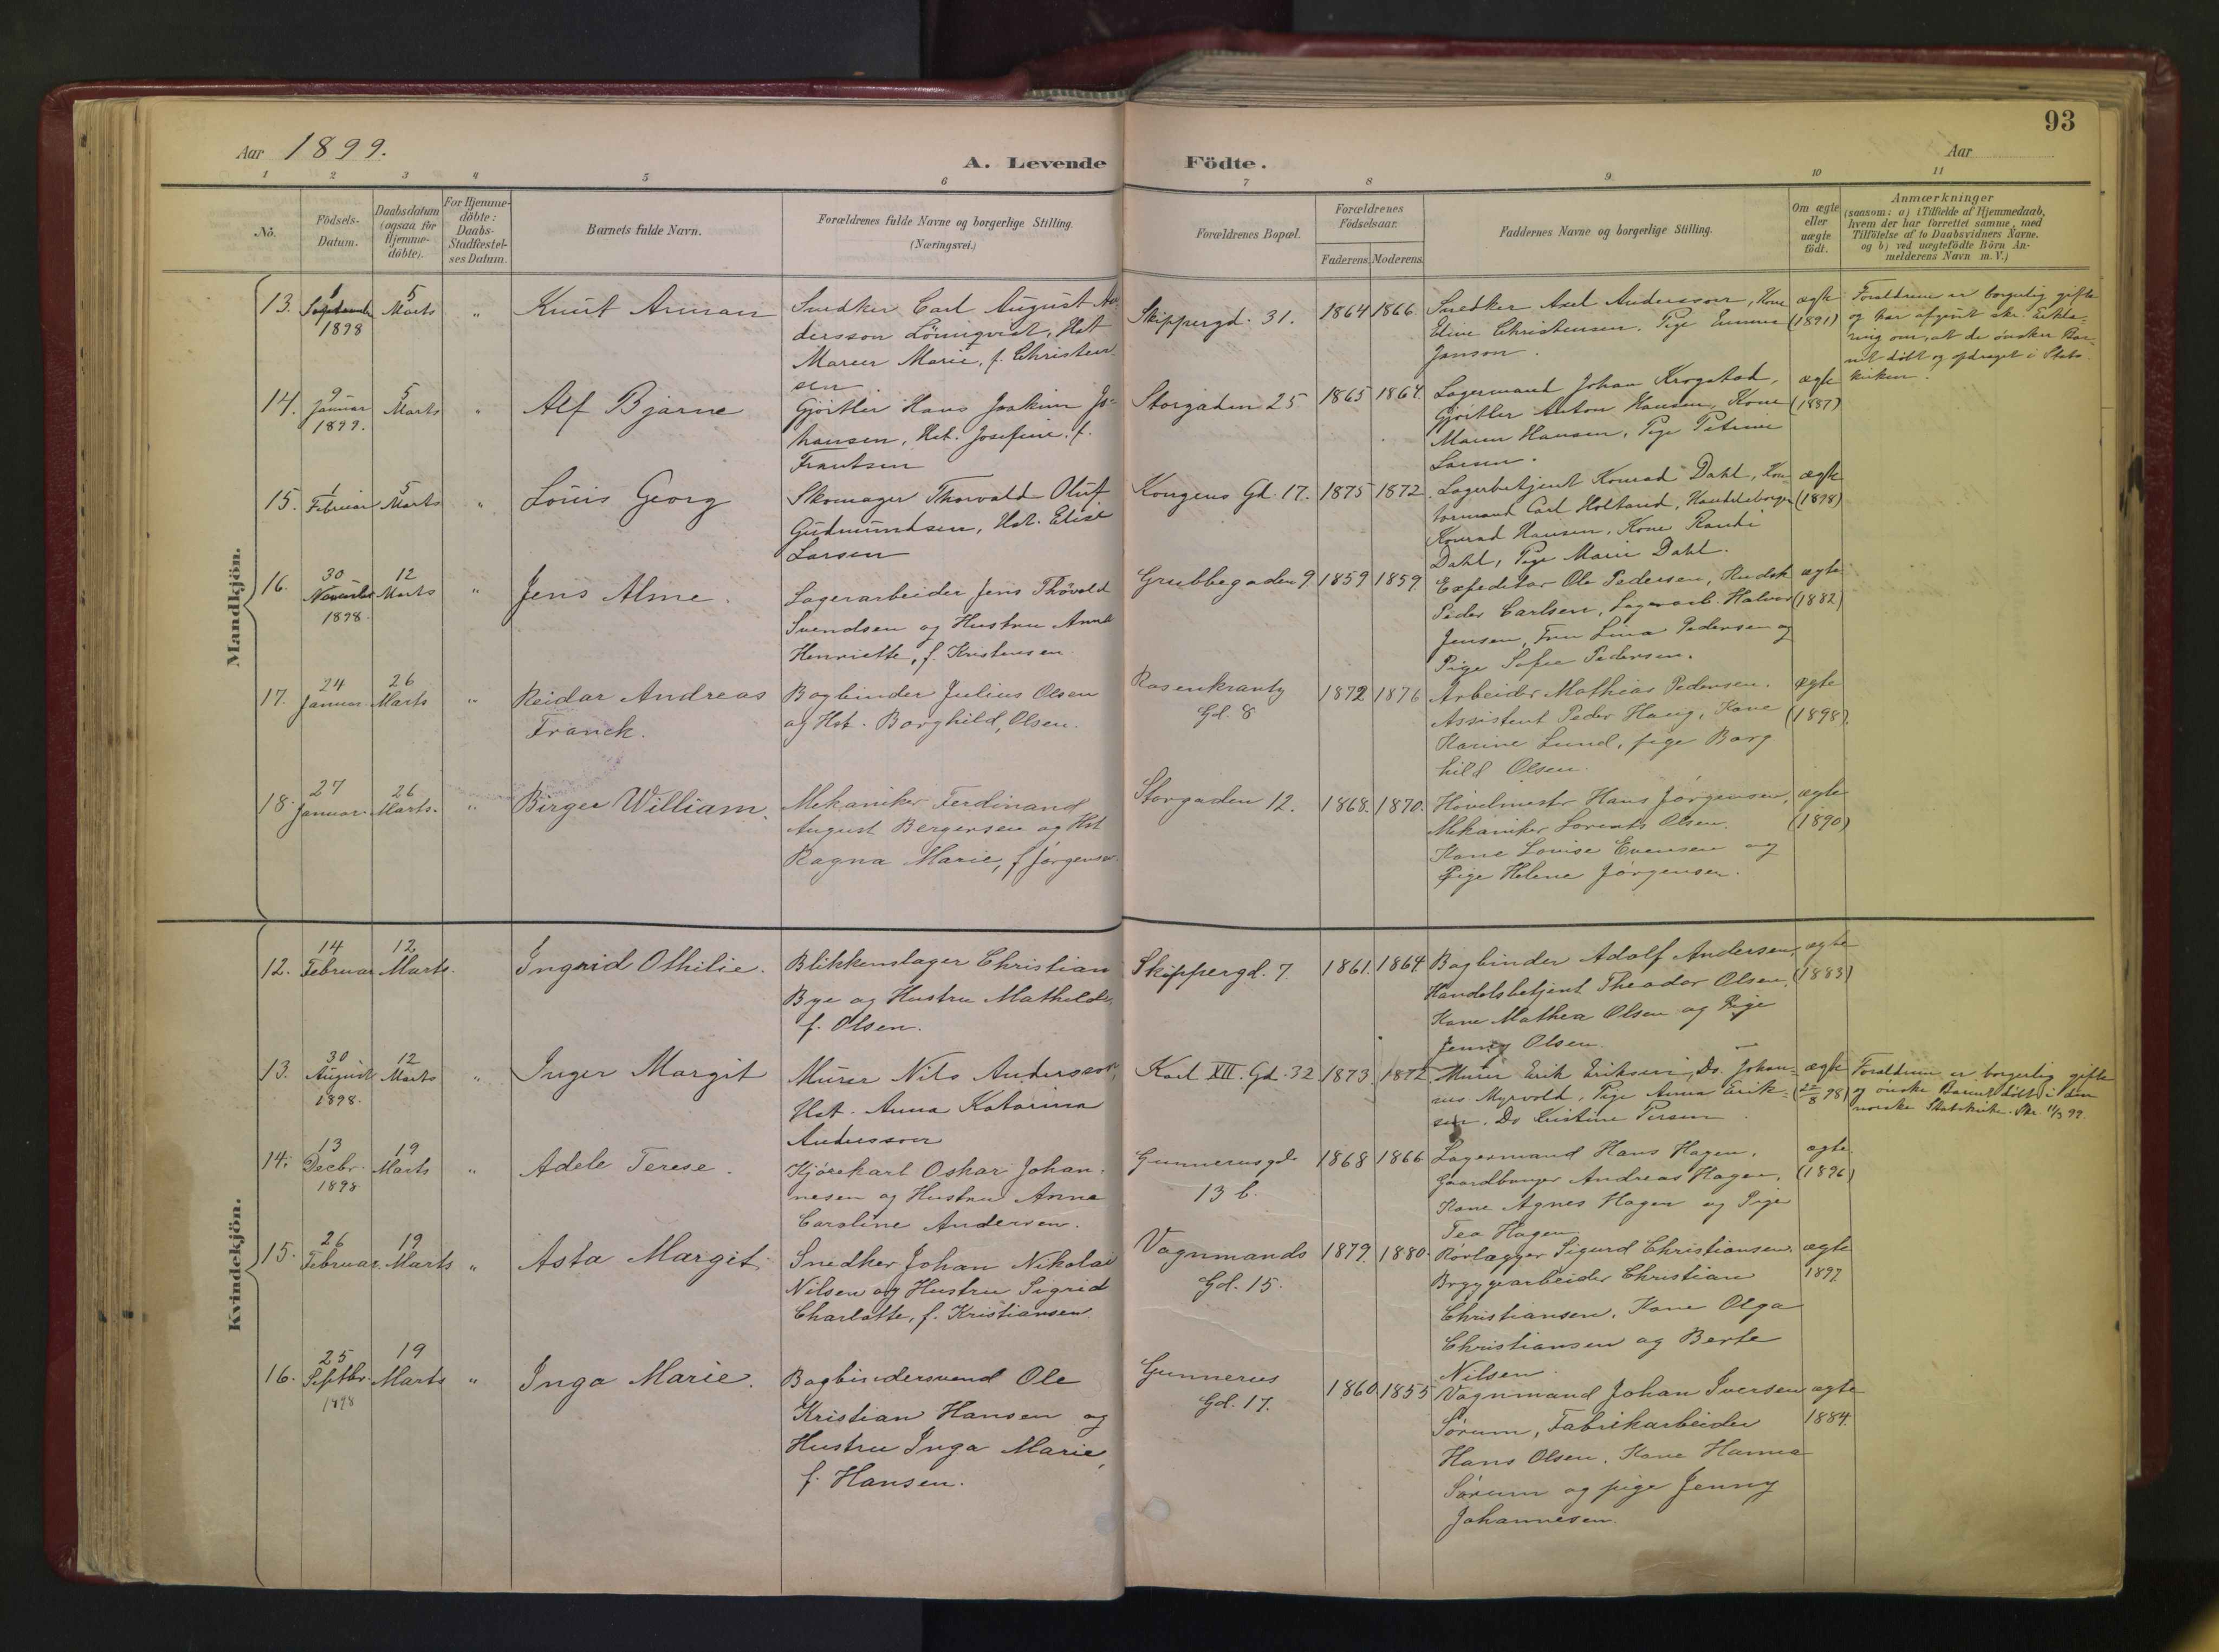 93
Aar 1899.
A. Levende Födte.
Aar
1 2 3 4 5 6 7 8 9 10 11
No.
Födsels-
Datum.
Daabsdatum
(ogsaa for
Hjemme-
døbte).
For Hjemme-
døbte:
Daabs-
Stadfæstel-
ses Datum.
Barnets fulde Navn.
Forældrenes fulde Navne og borgerlige Stilling.
(Næringsvei.)
Forældrenes Bopæl.
Forældrenes
Födselsaar.
Faderens. Moderens.
Faddernes Navne og borgerlige Stilling.
Om ægte
eller
uægte
født.
Anmærkninger
(saasom: a) i Tilfælde af Hjemmedaab,
hvem der har forrettet samme, med
Tilföielse af to Daabsvidners Navne.
og b) ved uægtefödte Börn An-
melderens Navn m. V.)
Mandkjön.
13.
1
September
1898
5
Marts
"
Knut Arman
Snedker Carl August An-
dersson Lönnqvist, Hst
Maren Marie, f. Christen-
sen
Skippergd. 31.
1864 1866
Snedker Axel Andersson, Kone
Eline Christensen. Pige Emma
Janson.
ægte
(1891)
Forældrene er borgerlig gifte
og har afgivit skr. Erklæ-
ring om, at de ønsker Bar-
net døbt og opdraget i Stats-
kirken.
14.
9
Januar
1899.
5
Marts
"
Alf Bjarne
Gjörtler Hans Joakim Jo-
hansen, Hst. Josefine f.
Frantsen
Storgaden 25
1865 1864
Lagermand Johan Krogstad,
Gjörtler Anton Hansen, Kone
Maren Hansen, Pige Petrine
Larsen.
ægte
(1887)
15.
1
Februar
5
Marts
"
Louis Georg
Skomager Thorvald Oluf
Gudmundsen, Hst. Elise
Larsen
Kongens Gd. 17.
1875 1872
Lagerbetjent Konrad Dahl, Kon-
tormand Carl Holtand, Handelsborger
Konrad Hansen, Kone Randi
Dahl, Pige Marie Dahl.
ægte
(1898)
16.
30
November
1898.
12
Marts
"
Jens Alme.
Lagerarbeider Jens Thorvald
Svendsen og Hustru Anne
Henriette, f. Kristensen
Grubbegaden 9
1859 1859.
Expeditør Ole Pedersen, Snedk
Peder Carlsen, Lagerarb. Halvor
Jensen, Fru Lina Pedersen og
Pige Sofie Pedersen.
ægte
(1882)
17.
24
Januar.
26
Marts
"
Reidar Andreas
Franck.
Bogbinder Julius Olsen
og Hst. Borghild, Olsen.
Rosenkrantz
Gd. 8
1872 1876
Arbeider Mathias Pedersen.
Assistent Peder Haug, Kone
Karine Lund, pige Borg
hild Olsen.
ægte
(1898).
18.
27
Januar.
26
Marts.
"
Birger William.
Mekaniker Ferdinand
August Bergersen og Hst
Ragna Marie, f Jørgensen.
Storgaden 12.
1868. 1870.
Høvelmester Hans Jørgensen,
Mekaniker Lorents Olsen.
Kone Lovise Evensen og
Pige Helene Jørgensen.
ægte
(1890)
Kvindekjön.
12.
14
Februar
12
Marts.
"
Ingrid Othilie.
Blikkenslager Christian
Bye og Hustru Mathilde,
f. Olsen.
Skippergd. 7.
1861. 1864
Bogbinder Adolf Andersen,
Handelsbetjent Theodor Olsen,
Kone Mathea Olsen og Pige
Jenny Olsen.
ægte
(1883)
13.
30
August
1898.
12
Marts
"
Inger Margit
Murer Nils Andersson,
Hst. Anna Katarina
Andersson
Karl XII. Gd. 32
1873 1872
Murer Erik Eriksen, Do. Johan-
nes Myrvold, Pige Anna Erik-
sen. Do Kristine Persen
ægte
98)
Forældrene er borgerlig gifte
og ønske Barnet døbt i den
norske Statskirke. Skr. 11/3 99.
14.
13
Decbr.
1898.
19
Marts
"
Adele Terese.
Kjørekarl Oskar Johan-
nesen og Hustru Anna
Caroline Andersen.
Gunnerusgd.
13 b.
1868 1866
Lagermand Hans Hagen,
Gaardbruger Andreas Hagen,
Kone Agnes Hagen og Pige
Tea Hagen
ægte.
(1896)
15.
26
Februar.
19
Marts
"
Asta Margit.
Snedker Johan Nikolai
Nilsen og Hustru Sigrid
Charlotte, f. Kristiansen.
Vognmands
Gd. 15.
1879. 1880.
Rørlægger Sigurd Christiansen.
Bryggearbeider Christian
Christiansen, Kone Olga
Christiansen og Berte
Nilsen.
ægte
1897
16.
25
Septbr.
1898
19
Marts
"
Inga Marie.
Bogbindersvend Ole
Kristian Hansen og
Hustru Inga Marie,
f. Hansen.
Gunnerus
Gd. 17.
1860 1855
Vognmand Johan Iversen
Sørum, Fabrikarbeider
Hans Olsen, Kone Hanna
Sørum og pige Jenny
Johannesen.
ægte
1884.